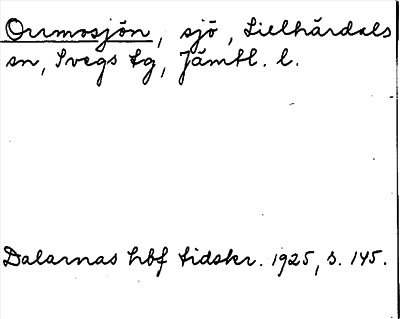 Orrmosjön, sjö, Lillhärdals
sn, Svegs tg, Jämtl. l.
Dalarnas hbf tidskr. 1925, s. 145.